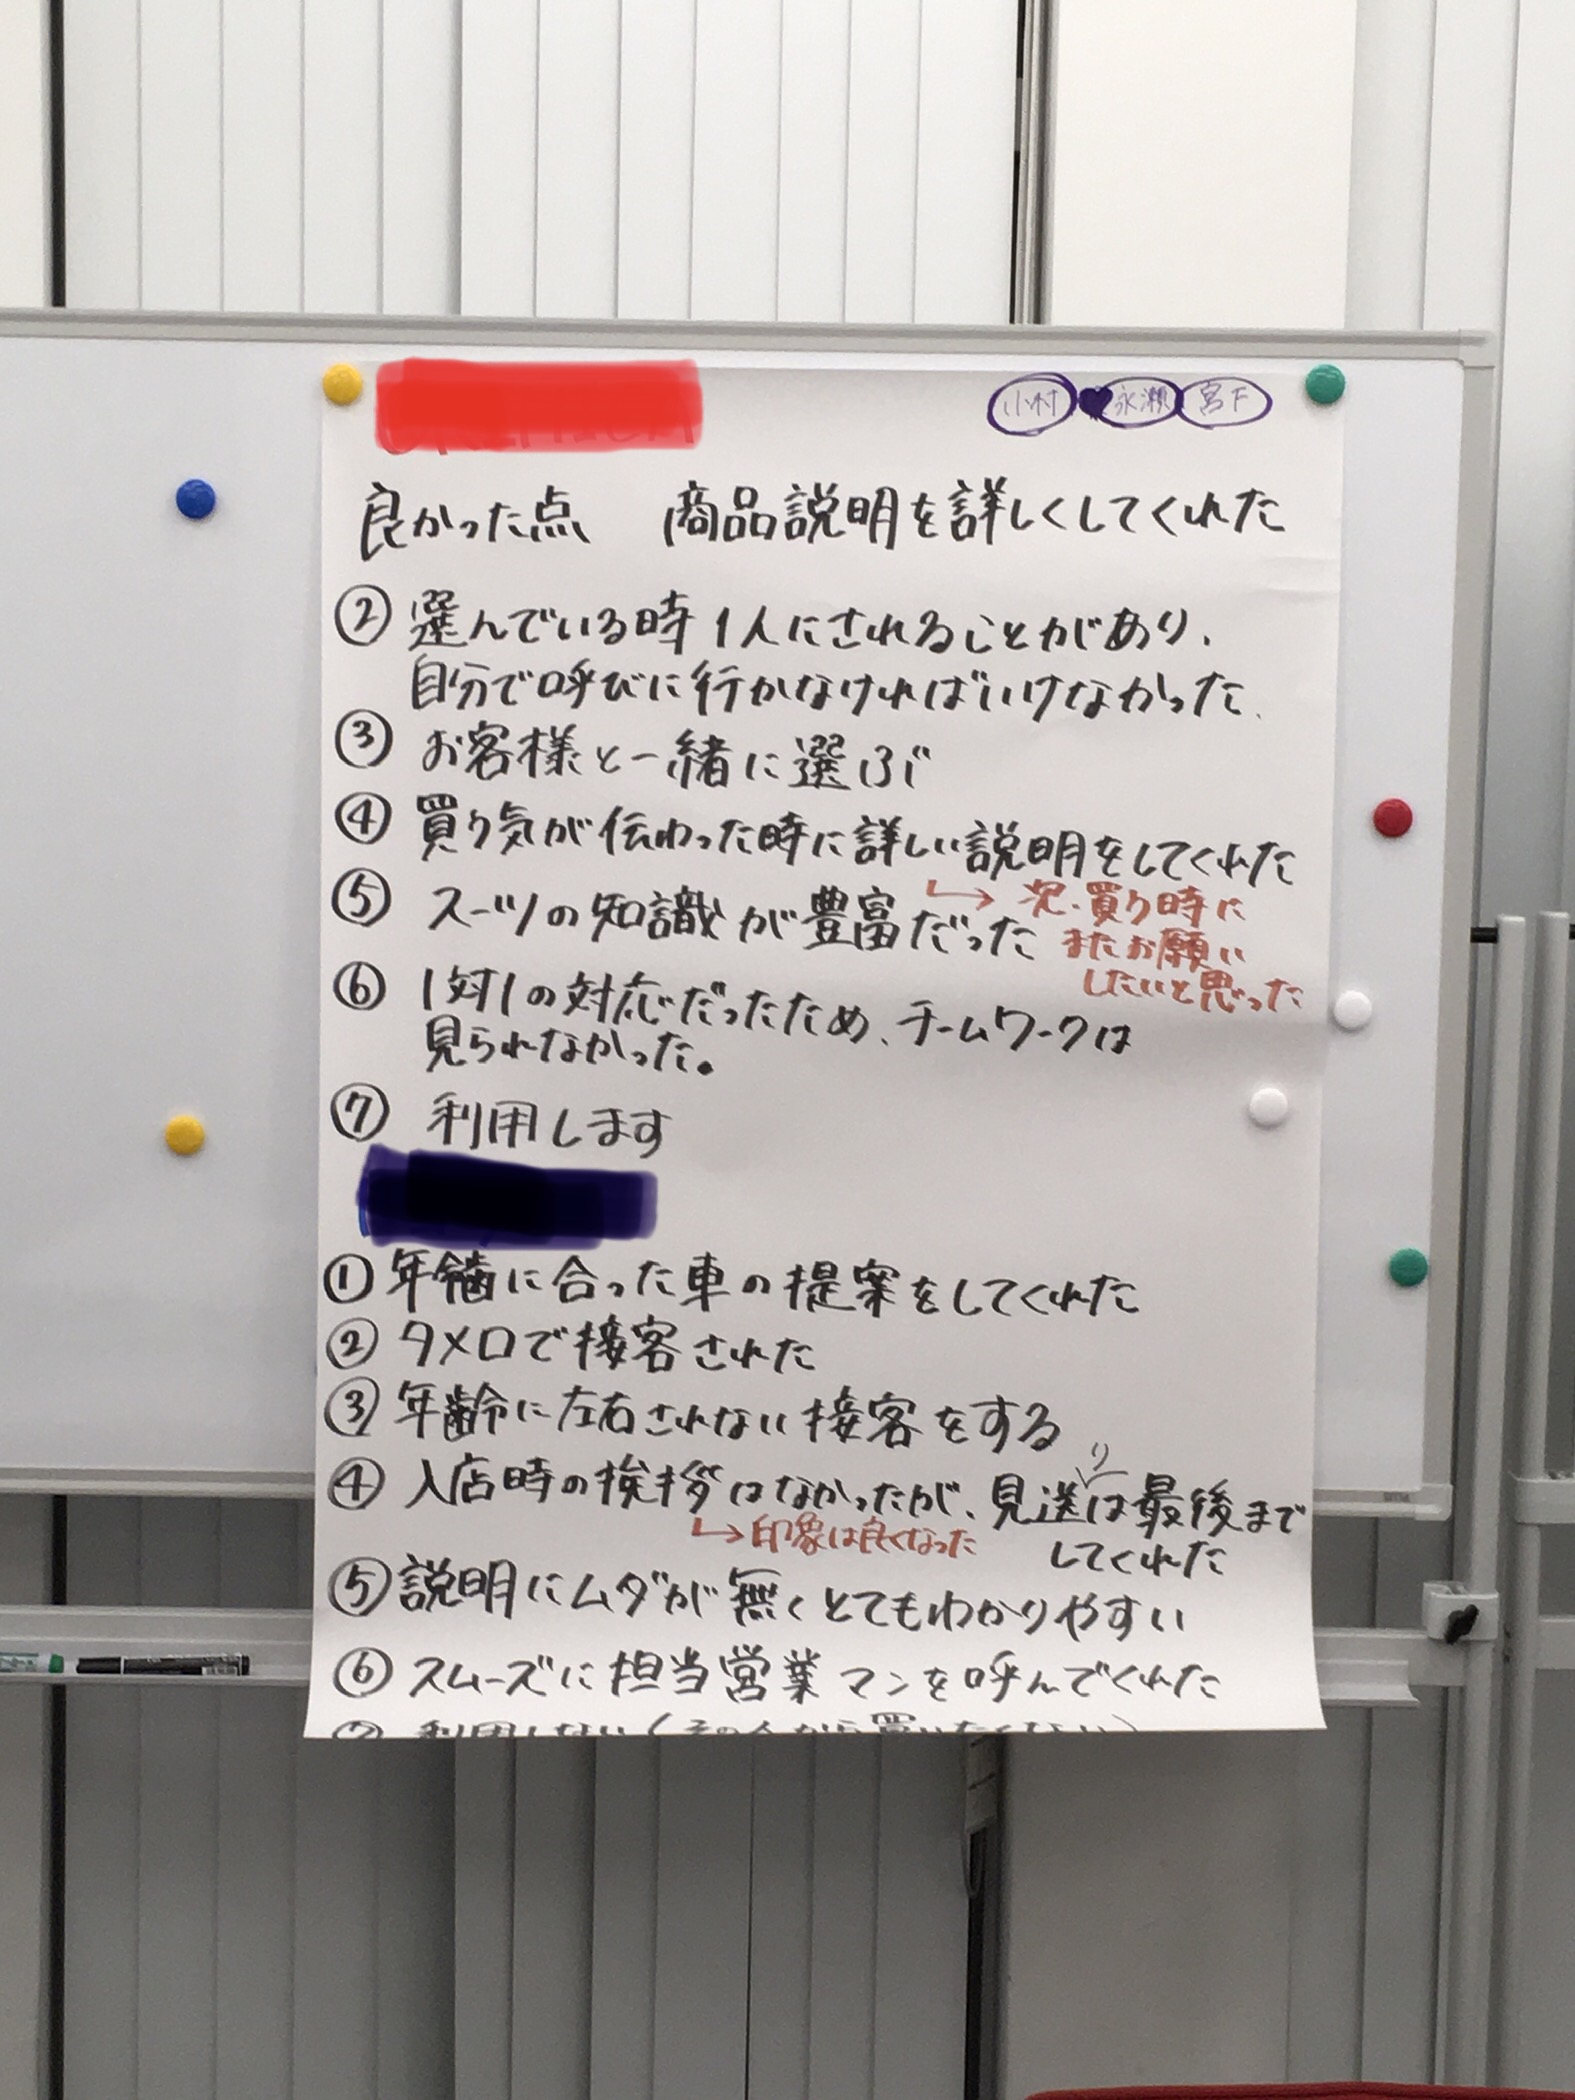 小村 永瀬 宮下
良かった点 商品説明を詳しくしてくれた
② 選んでいる時1人にされることがあり、
自分で呼びに行かなければいけなかった、
③ お客様と一緒に選ぶ
④ 買う気が伝わった時に詳しい説明をしてくれた
↳ 次、買う時に
またお願い
したいと思った
⑤ スーツの知識が豊富だった
⑥ 1対1の対応だったため、チームワークは
見られなかった。
⑦ 利用します
① 年齢に合った車の提案をしてくれた
② タメ口で接客された
③ 年齢に左右されない接客をする
④ 入店時の挨拶はなかったが、見送りは最後まで
してくれた
↳ 印象は良くなった
⑤ 説明にムダが無くとてもわかりやすい
⑥ スムーズに担当営業マンを呼んでくれた